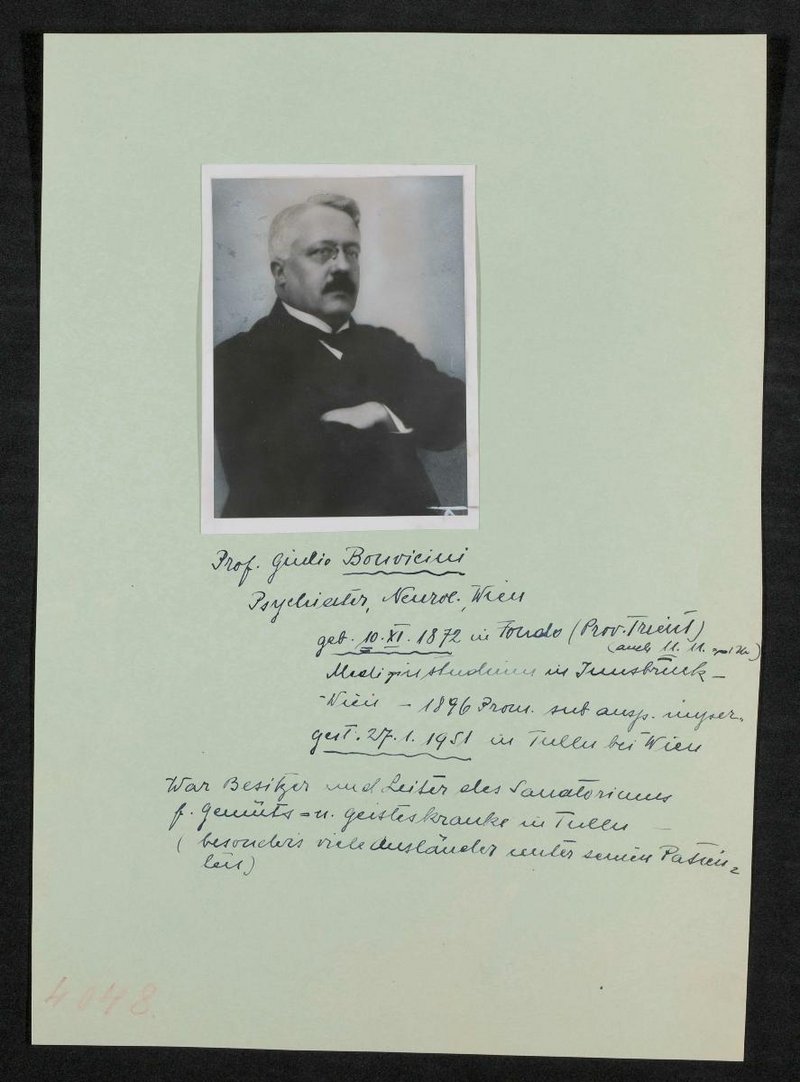 Prof. Giulio Bonvicini
Psychiater, Neurol., Wien
geb. 10. XI. 1872 in Fondo (Prov. Trient)
(auch 11. 11.
Medizinstudium in Innsbruck –
Wien – 1896 Prom. sub ausp. imper.
gest. 27. 1. 1951 in Tulln bei Wien
War Besitzer und Leiter des Sanatoriums
f. Gemüts = u. Geisteskranke in Tulln –
(besonders viele Ausländer unter seinen Patien=
ten)
4048